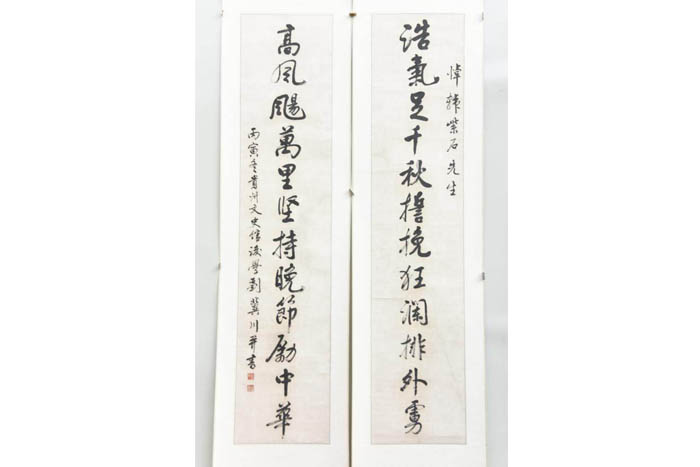 悼韓紫石先生
浩氣足千秋誓挽狂瀾排外虜
高风颺萬里坚持晚節勵中華
丙寅冬貴州文史馆後學劉冀川并書